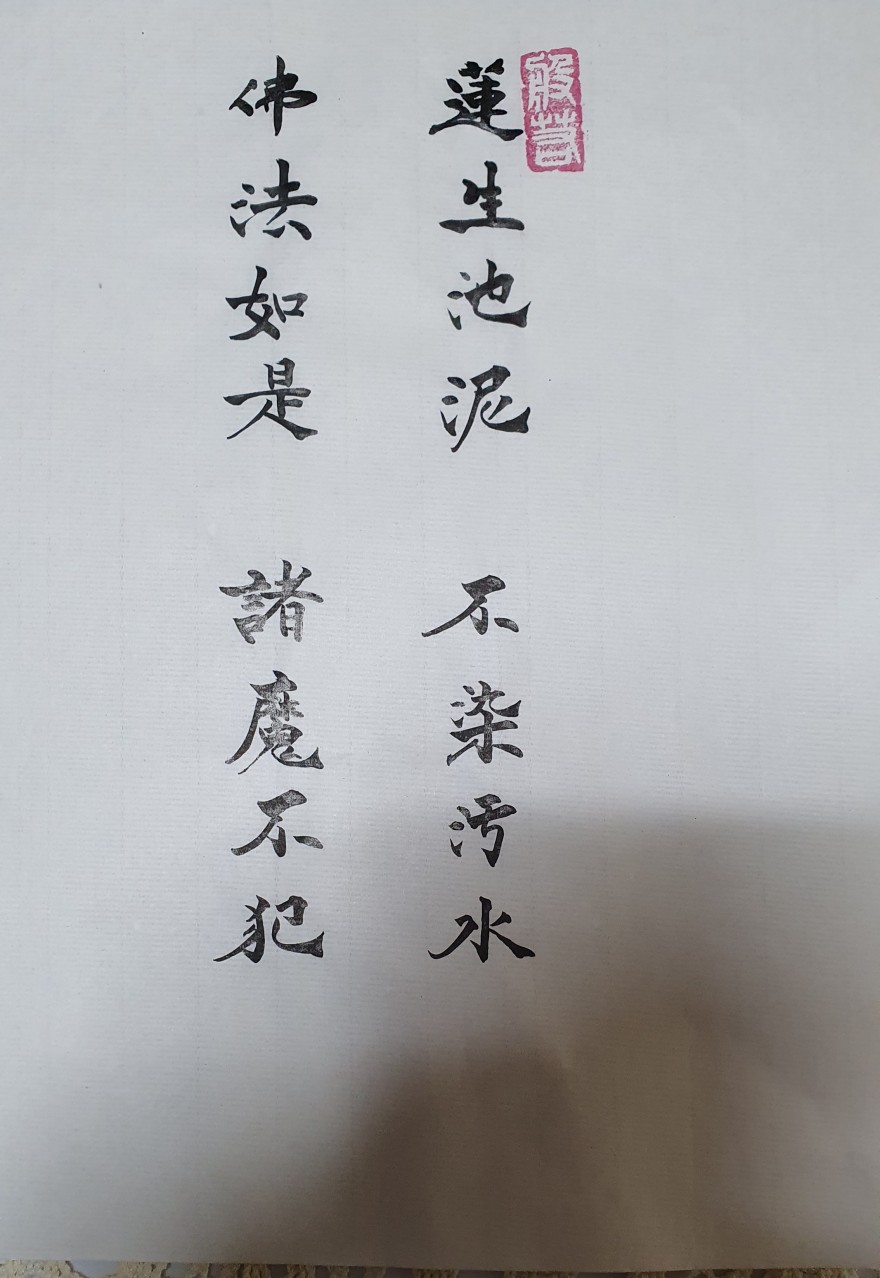 般若
蓮生池泥 不染汚水
佛法如是 諸魔不犯